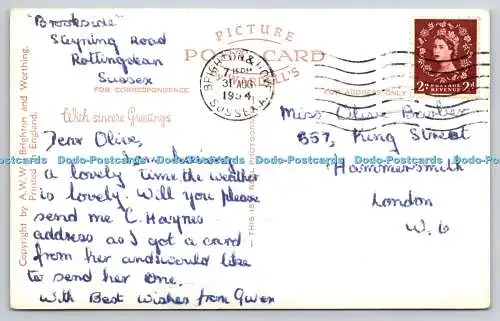 "Brookside"
Steyning Road
Rottingdean
Sussex
PICTURE
POSTCARD
FOR CORRESPONDENCE
FOR ADDRESS ONLY
BRIGHTON & HOVE
31 AUG
1954
SUSSEX
POSTAGE REVENUE
2D 2D
With sincere Greetings
Copyright by A.W.W. Brighton and Worthing.
Printed England.
THIS IS A REAL PHOTOGRAPH
Dear Olive,
having
a lovely time the weather
is lovely. Will you please
send me C. Haynes
address as I got a card
from her and would like
to send her one.
With Best Wishes from Gwen
Miss Olive
357, King Street
Hammersmith
London
W. 6
Dodo-Postcards Dodo-Postcards Dodo-Postcards Dodo-Postcards Dodo-Postcards Dodo-Postcards